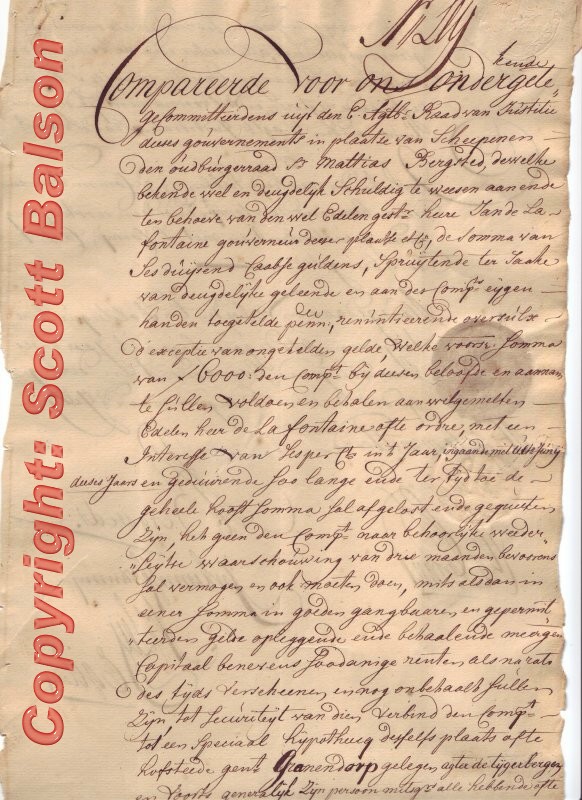 Copyright: Scott Balson
Compareerde voor ons ondergete
kende
Gecommitteerdens uijt den E. Agtb: Raad van Justitie
deses gouvernements in plaatse van Scheepenen
den oudburgerraad Sr Mathias Bergsted, dewelke
bekende wel en deugdelijk Schuldig te weesen aan ende
ten behoeve van den wel Edelen gestr: heere Jan de La
fontaine gouverneur deser plaatse etc:, de somma van
Ses duijsend Caabse guldens, Spruijtende ter Saake
van deugdelijke geleende en aan des Compts eijgen
handen toegetelde penn:, renuntieerende oversulx
d'exceptie van ongetelden gelde, welke voorsz: Somma
van ƒ6000: den Compt bij deesen beloofde en aannam
te Sullen voldoen en betalen aan welgemelten
Edelen heer de La fontaine ofte ordre, met een
Interesse van Ses per Ct: in't Jaar, ingaande met Junij
deeses Jaars en gedúúrende soo lange ende ter tijd toe de
geheele hooft Somma Sal afgelost ende gequeeten
Zijn het geen den Compt: naar behoorlijke weeder
Seijtse waarschouwing van drie maanden bevoorens
Sal vermogen en ook moeten doen, mits als dan in
eener Somma in goeden gangbaaren en gepermit
teerden gelde opleggende ende betaalende
Capitaal benevens soodanige renten, als na rato
des tijds verscheenen en nog onbetaalt Sullen
Zijn tot Securiteijt van dien verbind den Compt
tot een Speciaal hijpotheecq desselfs plaats ofte
hofsteede gent: Groenendorp gelegen agter de tijgerbergen
en voorts generalijk Zijn persoon mitsgrs alle hebbende ofte